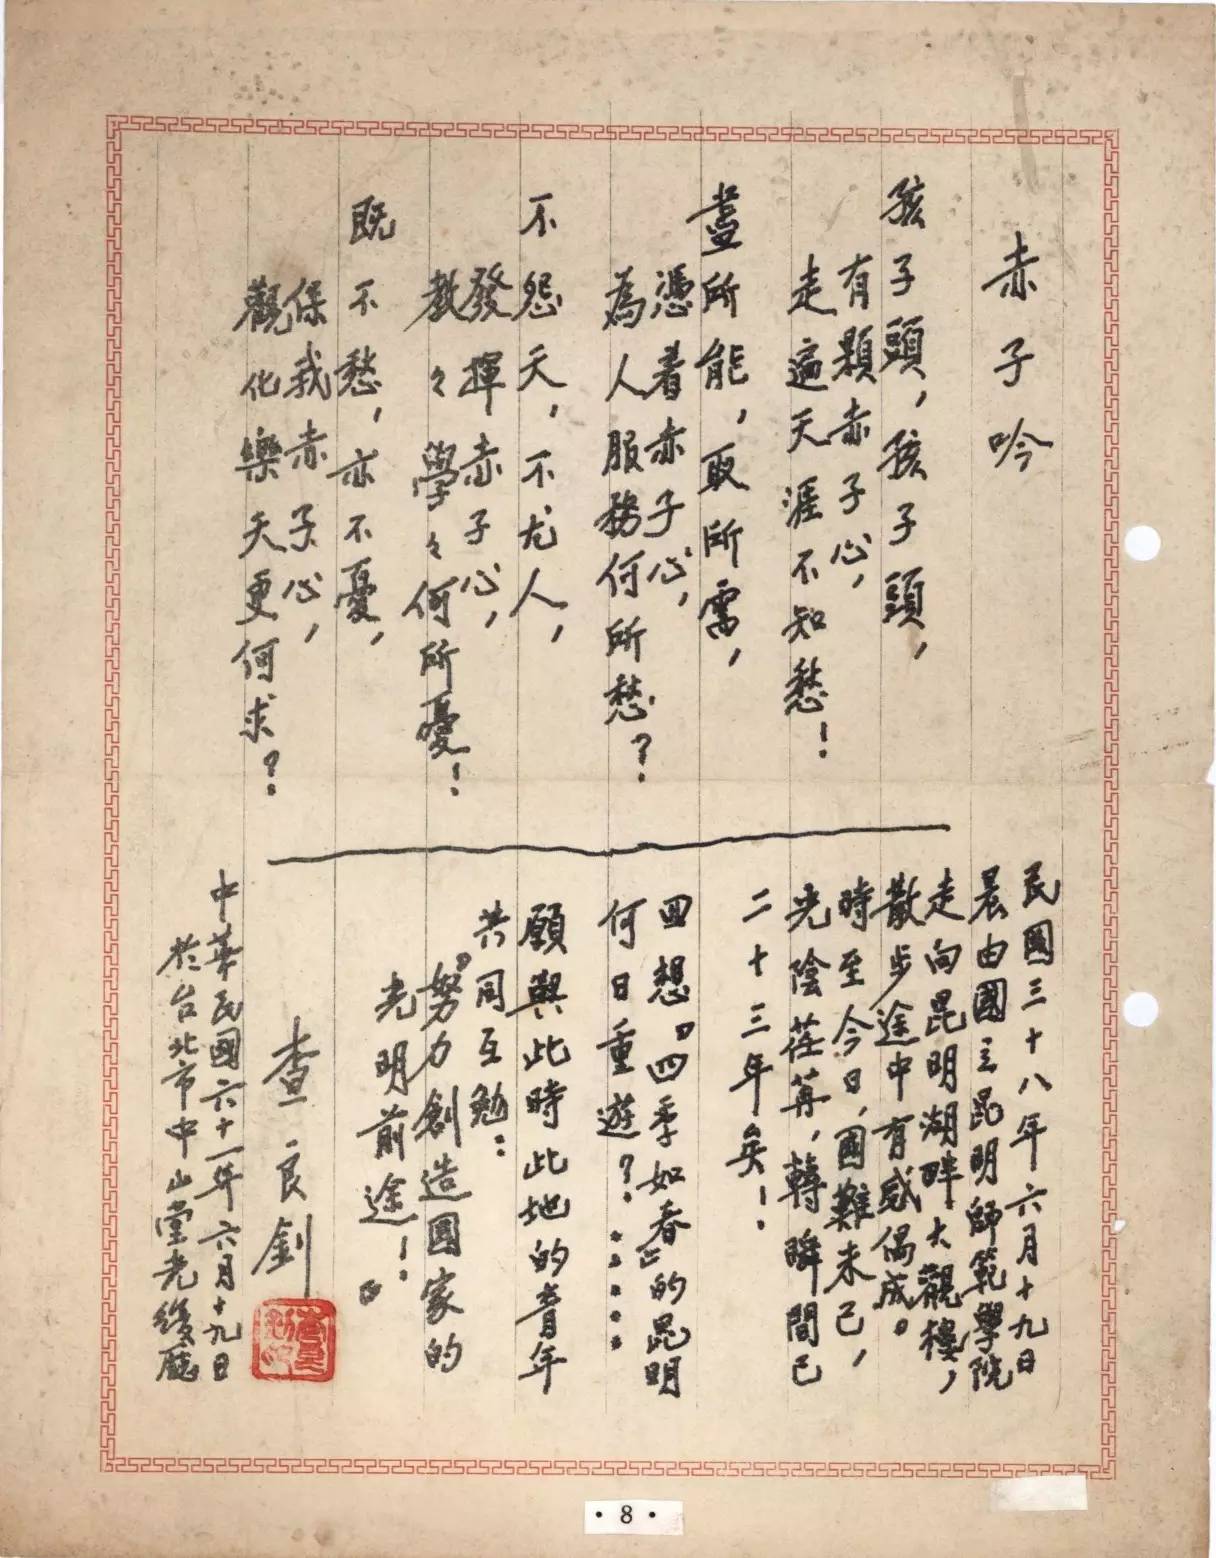 赤子吟
孩子頭，孩子頭，
有顆赤子心，
走遍天涯不知愁！
盡所能，取所需，
憑着赤子心，
為人服務何所愁？
不怨天，不尤人，
發揮赤子心，
教々學々何所憂！
既不愁，亦不憂，
保我赤子心，
觀化樂天更何求？
民國三十八年六月十九日
晨由國立昆明師範學院
走向昆明湖畔大觀樓，
散步途中有感偶成。
時至今日，國難未已，
光陰荏苒，轉瞬間已
二十三年矣！
回想『四季如春』的昆明
何日重遊？……
願與此時此地的青年
共同互勉：
『努力創造國家的
光明前途！』
查良釗
中華民國六十一年六月十九日
於台北市中山堂光復廳
·8·